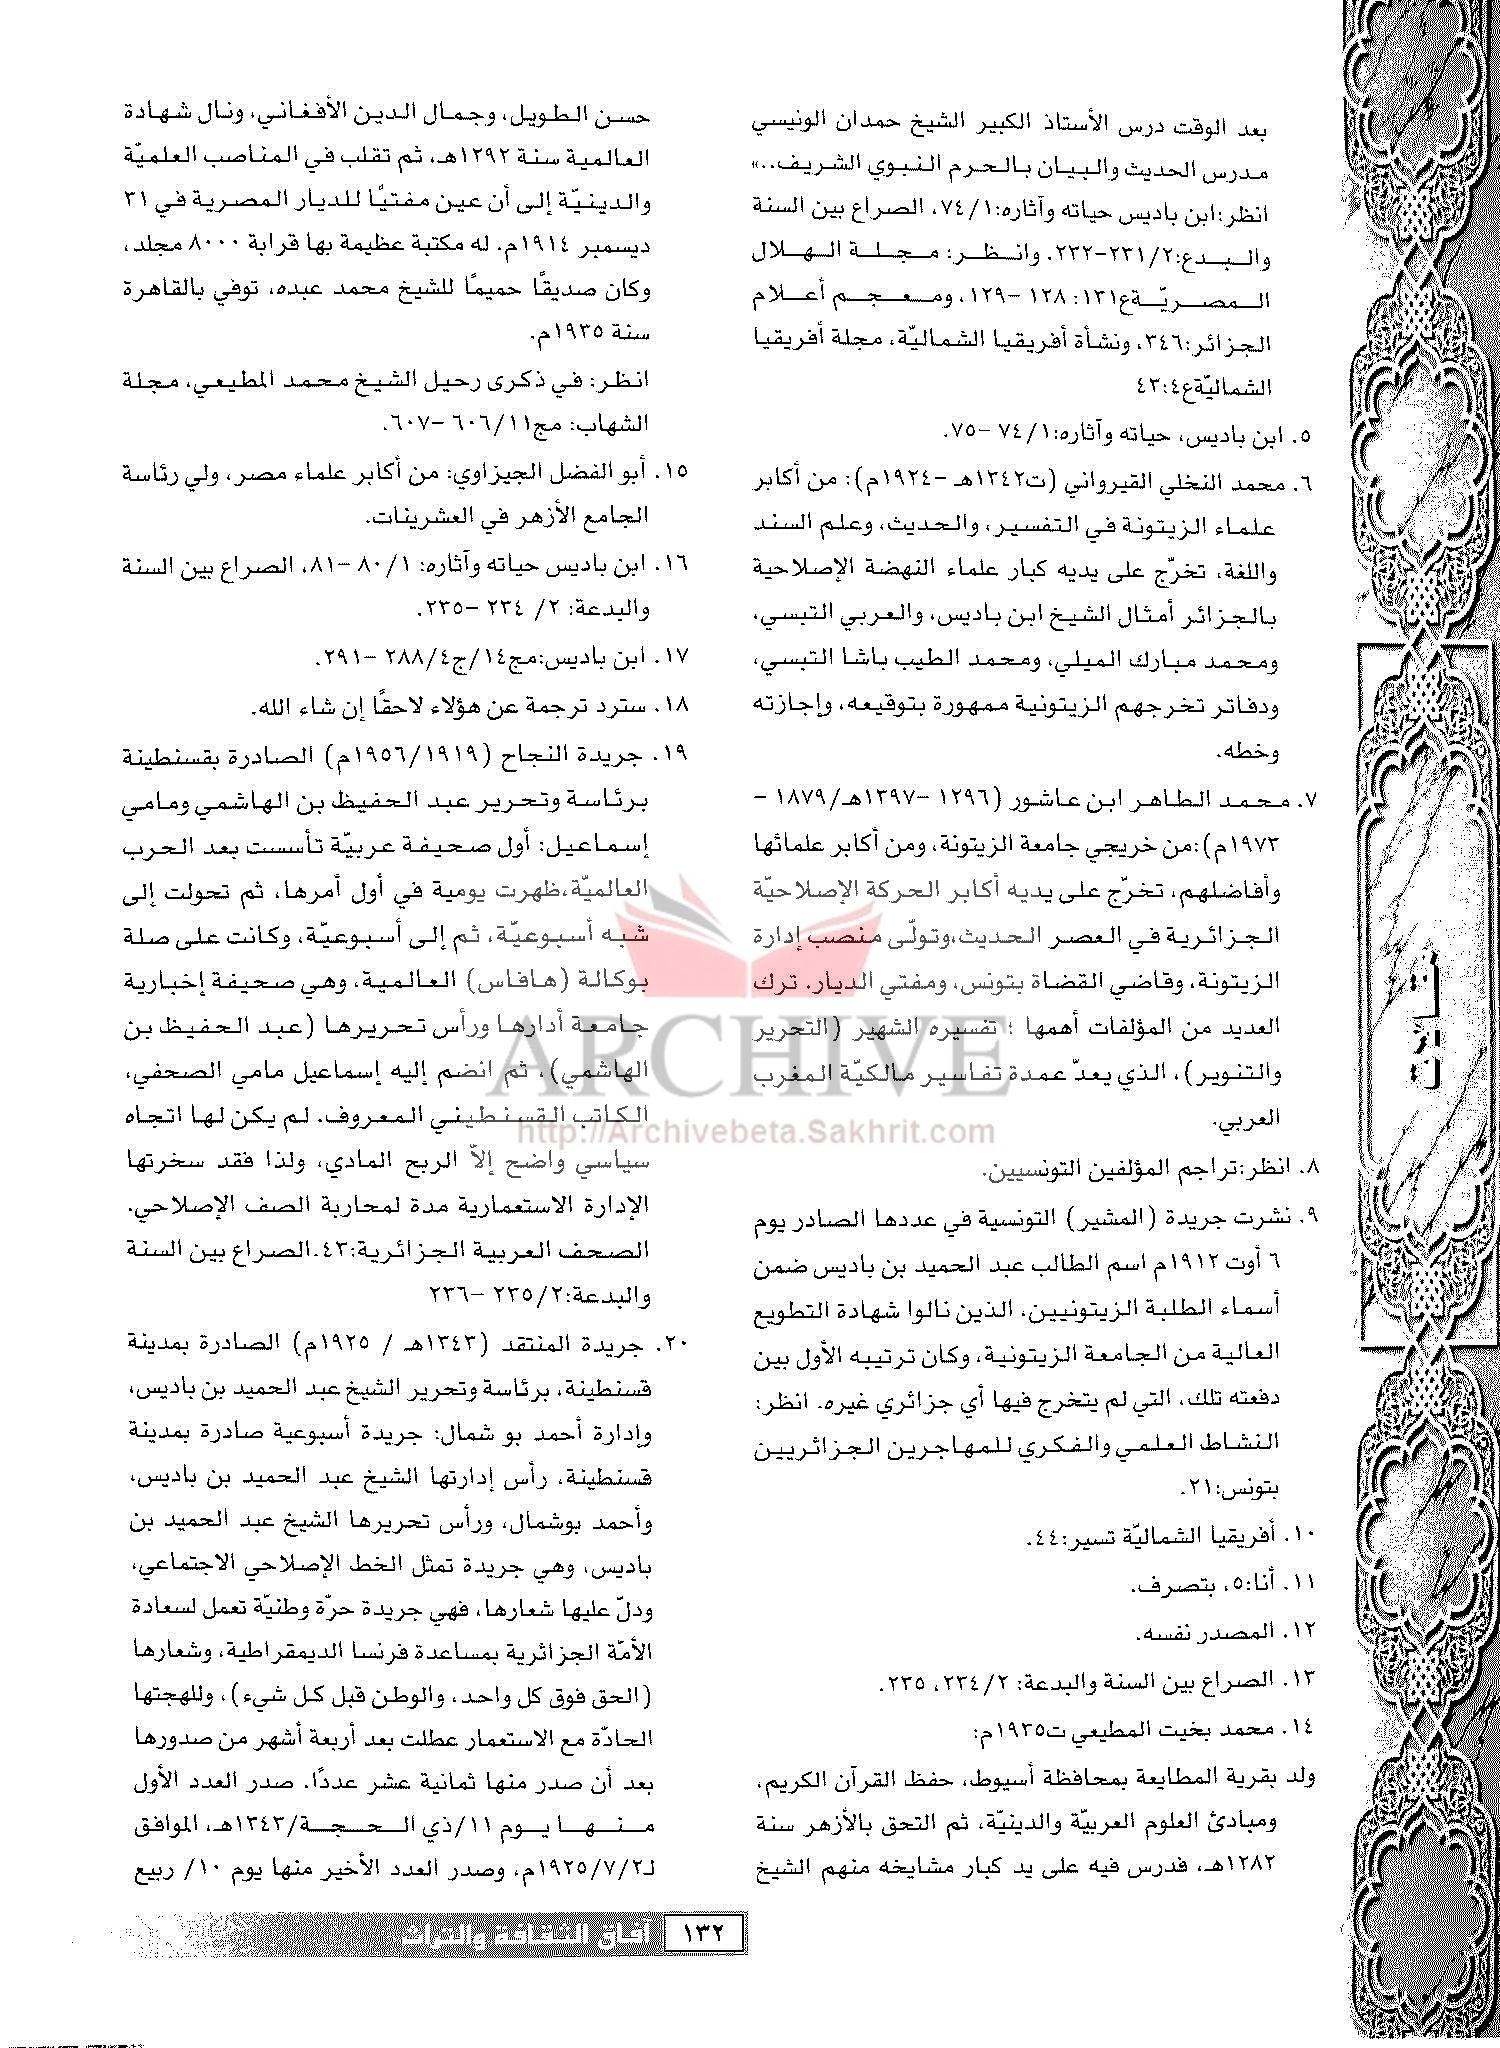 بعد الوقت درس الأستاذ الكبير الشيخ حمدان الونيسي
مدرس الحديث والبيان بالحرم النبوي الشريف..»
انظر:ابن باديس حياته وآثاره:٧٤/١، الصراع بين السنة
والبدع:٢٣١/٢-٢٣٢. وانظر: مجلة الهلال
المصريّة ع١٣١: ١٢٨ -١٢٩، ومعجم أعلام
الجزائر:٣٤٦، ونشأة أفريقيا الشماليّة، مجلة أفريقيا
الشماليّة ع٤:٤٣
٥. ابن باديس، حياته وآثاره:٧٤/١ -٧٥.
٦. محمد النخلي القيرواني (ت١٣٤٢هـ -١٩٢٤م): من أكابر
علماء الزيتونة في التفسير، والحديث، وعلم السند
واللغة، تخرّج على يديه كبار علماء النهضة الإصلاحية
بالجزائر أمثال الشيخ ابن باديس، والعربي التبسي،
ومحمد مبارك الميلي، ومحمد الطيب باشا التبسي،
ودفاتر تخرجهم الزيتونية ممهورة بتوقيعه، وإجازته
وخطه.
٧. محمد الطاهر ابن عاشور (١٢٩٦ -١٣٩٧هـ/١٨٧٩ -
١٩٧٣م):من خريجي جامعة الزيتونة، ومن أكابر علمائها
وأفاضلهم، تخرّج على يديه أكابر الحركة الإصلاحيّة
الجزائرية في العصر الحديث،وتولّى منصب إدارة
الزيتونة، وقاضي القضاة بتونس، ومفتي الديار. ترك
العديد من المؤلفات أهمها ؛ تفسيره الشهير (التحرير
والتنوير)، الذي يعدّ عمدة تفاسير مالكيّة المغرب
العربي.
٨. انظر:تراجم المؤلفين التونسيين.
٩. نشرت جريدة (المشير) التونسية في عددها الصادر يوم
٦ أوت ١٩١٢م اسم الطالب عبد الحميد بن باديس ضمن
أسماء الطلبة الزيتونيين، الذين نالوا شهادة التطويع
العالية من الجامعة الزيتونية، وكان ترتيبه الأول بين
دفعته تلك، التي لم يتخرج فيها أي جزائري غيره. انظر:
النشاط العلمي والفكري للمهاجرين الجزائريين
بتونس:٢١.
١٠. أفريقيا الشماليّة تسير:٤٤.
١١. أنا:٥، بتصرف.
١٢. المصدر نفسه.
١٣. الصراع بين السنة والبدعة: ٢٣٤/٢، ٢٣٥.
١٤. محمد بخيت المطيعي ت١٩٣٥م:
ولد بقرية المطايعة بمحافظة أسيوط، حفظ القرآن الكريم،
ومبادئ العلوم العربيّة والدينيّة، ثم التحق بالأزهر سنة
١٢٨٢هـ، فدرس فيه على يد كبار مشايخه منهم الشيخ
حسن الطويل، وجمال الدين الأفغاني، ونال شهادة
العالمية سنة ١٢٩٢هـ، ثم تقلب في المناصب العلميّة
والدينيّة إلى أن عين مفتيًا للديار المصرية في ٣١
ديسمبر ١٩١٤م. له مكتبة عظيمة بها قرابة ٨٠٠٠ مجلد،
وكان صديقًا حميمًا للشيخ محمد عبده، توفي بالقاهرة
سنة ١٩٣٥م.
انظر: في ذكرى رحيل الشيخ محمد المطيعي، مجلة
الشهاب: مج١١/ ٦٠٦ -٦٠٧.
١٥. أبو الفضل الجيزاوي: من أكابر علماء مصر، ولي رئاسة
الجامع الأزهر في العشرينات.
١٦. ابن باديس حياته وآثاره: ٨٠/١ -٨١، الصراع بين السنة
والبدعة: ٢/ ٢٣٤ -٢٣٥.
١٧. ابن باديس:مج١٤/ج٤/ ٢٨٨ -٢٩١.
١٨. سترد ترجمة عن هؤلاء لاحقًا إن شاء الله.
١٩. جريدة النجاح (١٩١٩/ ١٩٥٦م) الصادرة بقسنطينة
برئاسة وتحرير عبد الحفيظ بن الهاشمي ومامي
إسماعيل: أول صحيفة عربيّة تأسست بعد الحرب
العالميّة،ظهرت يومية في أول أمرها، ثم تحولت إلى
شبه أسبوعيّة، ثم إلى أسبوعيّة، وكانت على صلة
بوكالة (هافاس) العالمية، وهي صحيفة إخبارية
جامعة أدارها ورأس تحريرها (عبد الحفيظ بن
الهاشمي)، ثم انضم إليه إسماعيل مامي الصحفي،
الكاتب القسنطيني المعروف. لم يكن لها اتجاه
سياسي واضح إلاّ الربح المادي، ولذا فقد سخرتها
الإدارة الاستعمارية مدة لمحاربة الصف الإصلاحي.
الصحف العربية الجزائرية:٤٣.الصراع بين السنة
والبدعة:٢٣٥/٢ -٢٣٦
٢٠. جريدة المنتقد (١٣٤٣هـ / ١٩٢٥م) الصادرة بمدينة
قسنطينة، برئاسة وتحرير الشيخ عبد الحميد بن باديس،
وإدارة أحمد بو شمال: جريدة أسبوعية صادرة بمدينة
قسنطينة، رأس إدارتها الشيخ عبد الحميد بن باديس،
وأحمد بوشمال، ورأس تحريرها الشيخ عبد الحميد بن
باديس، وهي جريدة تمثل الخط الإصلاحي الاجتماعي،
ودلّ عليها شعارها، فهي جريدة حرّة وطنيّة تعمل لسعادة
الأمّة الجزائرية بمساعدة فرنسا الديمقراطية، وشعارها
(الحق فوق كل واحد، والوطن قبل كل شيء)، وللهجتها
الحادّة مع الاستعمار عطلت بعد أربعة أشهر من صدورها
بعد أن صدر منها ثمانية عشر عددًا. صدر العدد الأول
منها يوم ١١/ذي الحجة/١٣٤٣هـ، الموافق
لـ١٩٢٥/٧/٢م، وصدر العدد الأخير منها يوم ١٠/ ربيع
مقالات
ARCHIVE
http://Archivebeta.Sakhrit.com
١٣٢ آفاق الثقافة والتراث